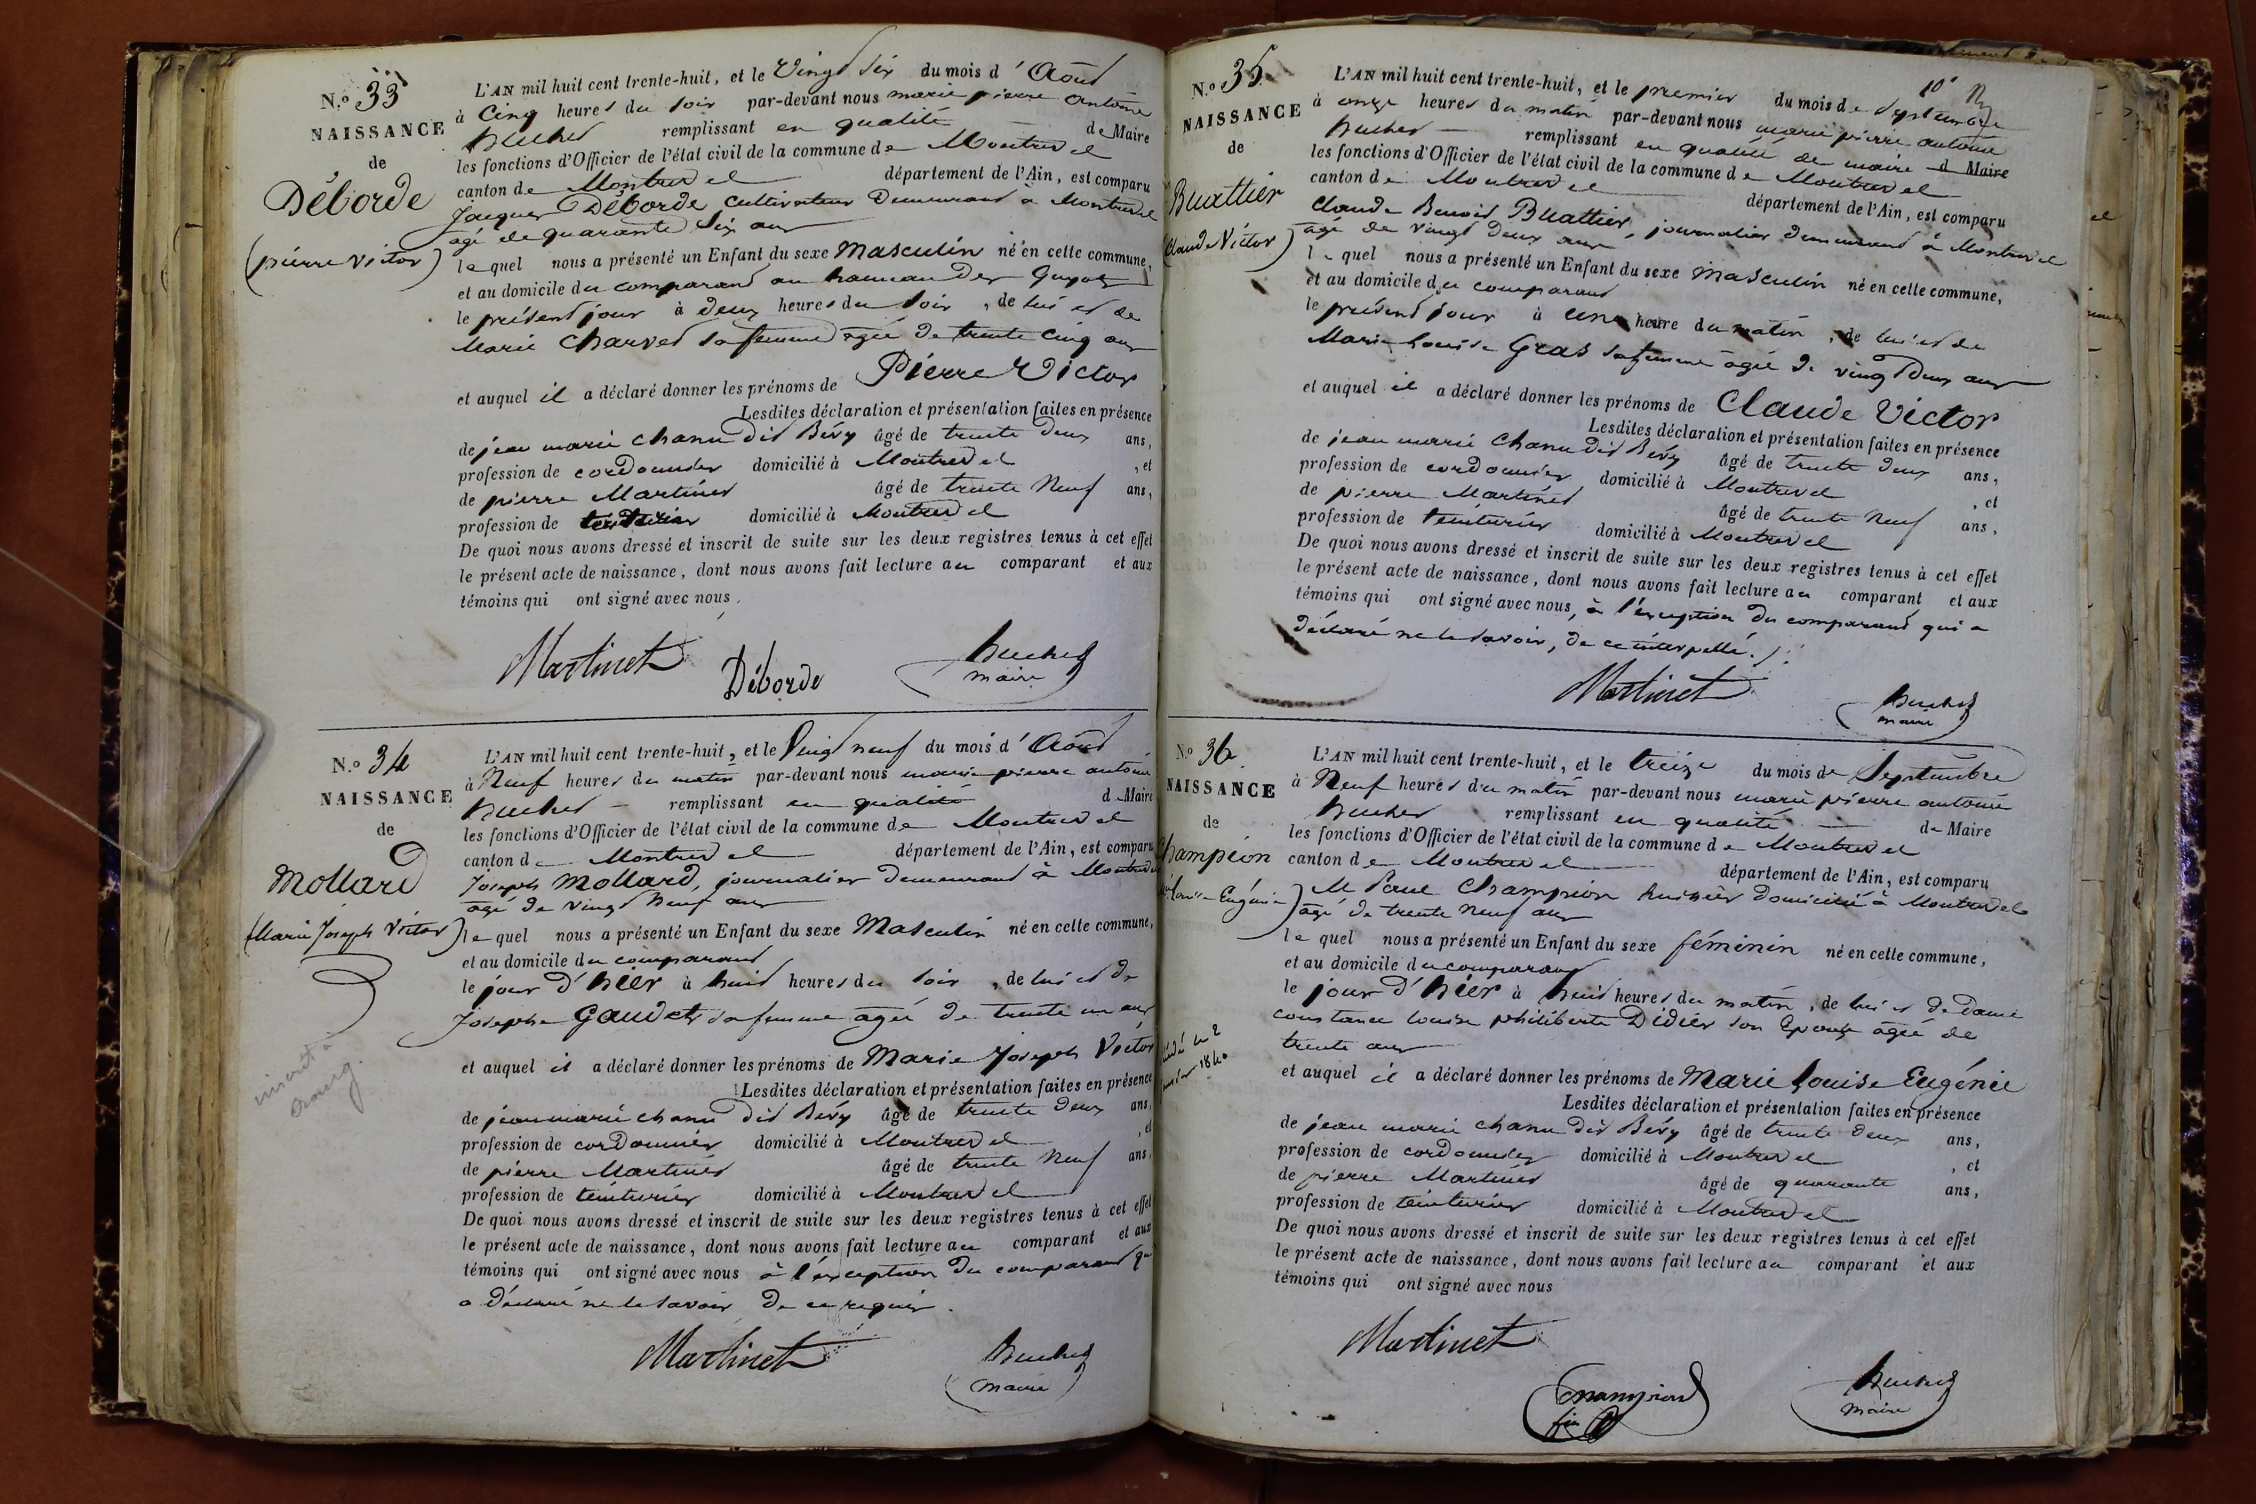 N.o 33
NAISSANCE
de
Déborde
(pierre victor)
L'AN mil huit cent trente-huit, et le Vingt Six du mois d'Août
à Cinq heures du soir par-devant nous marie pierre antoine
remplissant en qualité de Maire
les fonctions d'Officier de l'état civil de la commune de Montrevel
canton de Montrevel département de l'Ain, est comparu
Jacques Déborde cultivateur demeurant à Montrevel
agé de quarante Six ans
lequel nous a présenté un Enfant du sexe Masculin né en cette commune,
et au domicile du comparant au hameau des Guyots
le présent jour à deux heures du soir, de lui et de
Marie Charvet sa femme agée de trente cinq ans
et auquel il a déclaré donner les prénoms de Pierre Victor
Lesdites déclaration et présentation faites en présence
de jean marie chanu dit Bévy âgé de trente deux ans,
profession de cordonnier domicilié à Montrevel, et
de pierre Martinet âgé de trente Neuf ans,
profession de teinturier domicilié à Montrevel
De quoi nous avons dressé et inscrit de suite sur les deux registres tenus à cet effet
le présent acte de naissance, dont nous avons fait lecture au comparant et aux
témoins qui ont signé avec nous.
Martinet Déborde
maire
N.o 34
NAISSANCE
de
Mollard
(Marie Joseph Victor)
inscrit à
L'AN mil huit cent trente-huit, et le Vingt neuf du mois d'Août
à Neuf heures du matin par-devant nous marie pierre antoine
remplissant en qualité de Maire
les fonctions d'Officier de l'état civil de la commune de Montrevel
canton de Montrevel département de l'Ain, est comparu
Joseph Mollard, journalier demeurant à Montrevel
agé de vingt Neuf ans
lequel nous a présenté un Enfant du sexe Masculin né en cette commune,
et au domicile du comparant
le jour d'hier à huit heures du soir, de lui et de
Josephe Gaudet sa femme agée de trente un ans
et auquel il a déclaré donner les prénoms de Marie Joseph Victor
Lesdites déclaration et présentation faites en présence
de jean marie chanu dit Bévy âgé de trente deux ans,
profession de cordonnier domicilié à Montrevel, et
de pierre Martinet âgé de trente Neuf ans,
profession de teinturier domicilié à Montrevel
De quoi nous avons dressé et inscrit de suite sur les deux registres tenus à cet effet
le présent acte de naissance, dont nous avons fait lecture au comparant et aux
témoins qui ont signé avec nous à l'exception du comparant qui
a déclaré ne le savoir de ce requis.
Martinet
maire
N.o 35
NAISSANCE
de
Buattier
(Claude Victor)
L'AN mil huit cent trente-huit, et le premier du mois de Septembre
à onze heures du matin par-devant nous marie pierre antoine
remplissant en qualité de maire d Maire
les fonctions d'Officier de l'état civil de la commune de Montrevel
canton de Montrevel département de l'Ain, est comparu
Claude Benoit Buattier, journalier demeurant à Montrevel
agé de vingt deux ans
lequel nous a présenté un Enfant du sexe Masculin né en cette commune,
et au domicile du comparant
le présent jour à une heure du matin, de lui et de
Marie Louise Gras sa femme agée de vingt deux ans
et auquel il a déclaré donner les prénoms de Claude Victor
Lesdites déclaration et présentation faites en présence
de jean marie chanu dit Bévy âgé de trente deux ans,
profession de cordonnier domicilié à Montrevel, et
de pierre Martinet âgé de trente Neuf ans,
profession de teinturier domicilié à Montrevel
De quoi nous avons dressé et inscrit de suite sur les deux registres tenus à cet effet
le présent acte de naissance, dont nous avons fait lecture au comparant et aux
témoins qui ont signé avec nous, à l'exception du comparant qui a
déclaré ne le savoir, de ce interpellé.
Martinet
maire
No 36
NAISSANCE
de
Champion
Louise Eugénie)
1840
L'AN mil huit cent trente-huit, et le treize du mois de Septembre
à Neuf heures du matin par-devant nous marie pierre antoine
remplissant en qualité de Maire
les fonctions d'Officier de l'état civil de la commune de Montrevel
canton de Montrevel département de l'Ain, est comparu
M Paul Champion huissier domicilié à Montrevel
agé de trente Neuf ans
lequel nous a présenté un Enfant du sexe féminin né en cette commune,
et au domicile du comparant
le jour d'hier à huit heures du matin, de lui et de Dame
constance louise philiberte Didier son Epouse agée de
trente ans
et auquel il a déclaré donner les prénoms de Marie Louise Eugénie
Lesdites déclaration et présentation faites en présence
de jean marie chanu dit Bévy âgé de trente deux ans,
profession de cordonnier domicilié à Montrevel, et
de pierre Martinet âgé de quarante ans,
profession de teinturier domicilié à Montrevel
De quoi nous avons dressé et inscrit de suite sur les deux registres tenus à cet effet
le présent acte de naissance, dont nous avons fait lecture au comparant et aux
témoins qui ont signé avec nous
Martinet
Champion
maire